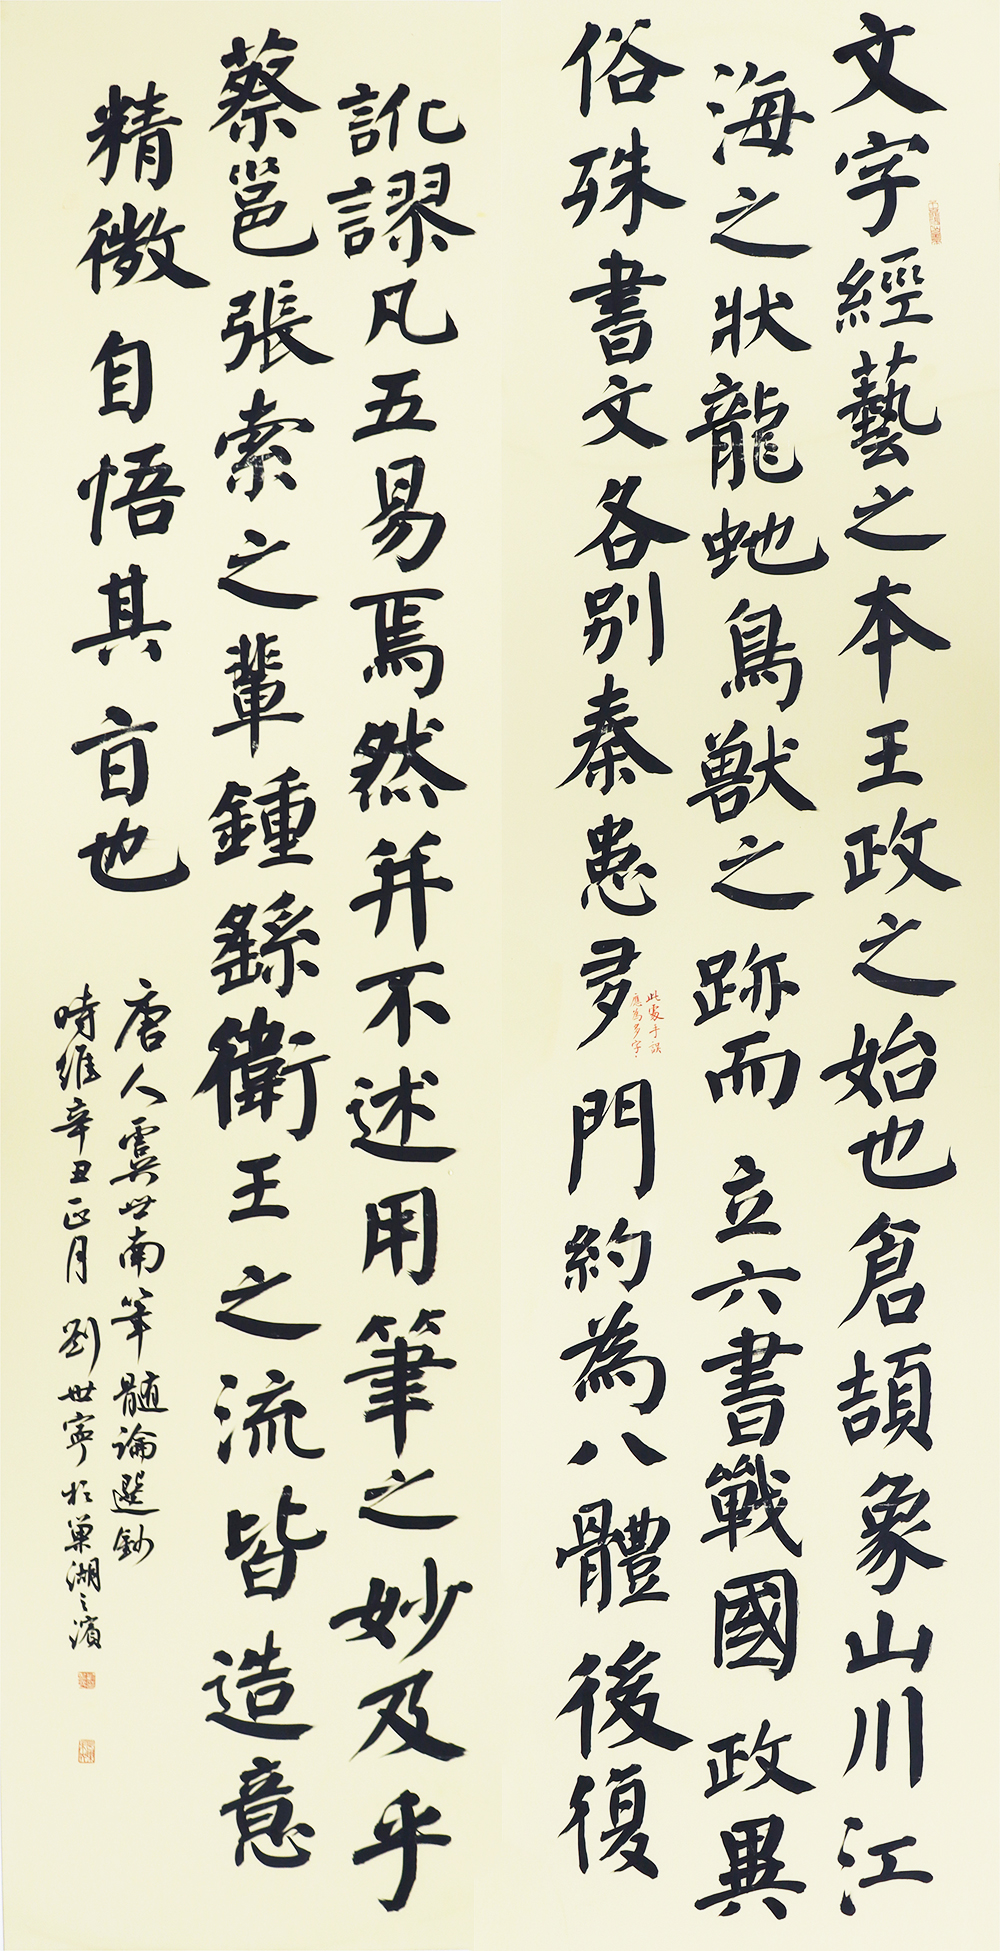 文字經藝之本王政之始也倉頡象山川江
海之狀龍虵鳥獸之跡而立六書戰國政異
俗殊書文各別秦患多門約為八體後復
此處手誤
應為多字
訛謬凡五易焉然并不述用筆之妙及乎
蔡邕張索之輩鍾繇衛王之流皆造意
精微自悟其旨也
唐人虞世南筆髓論選鈔
時維辛丑正月劉世寧於巢湖之濱